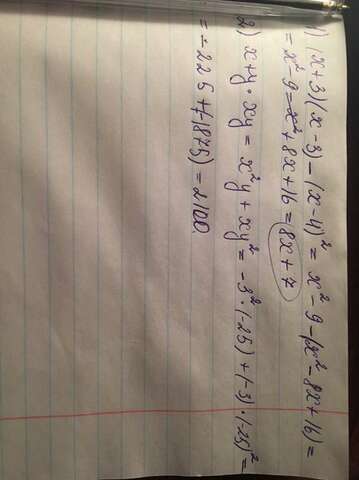 1) (x+3)(x-3)-(x-4)² = x²-9-(x²-8x+16)=
= x²-9-x²+8x+16 = 8x+7
2) x+y·xy = x²y+xy² = -3²·(-25)+(-3)·(-25)² =
= -225+(-1875) = 2100.